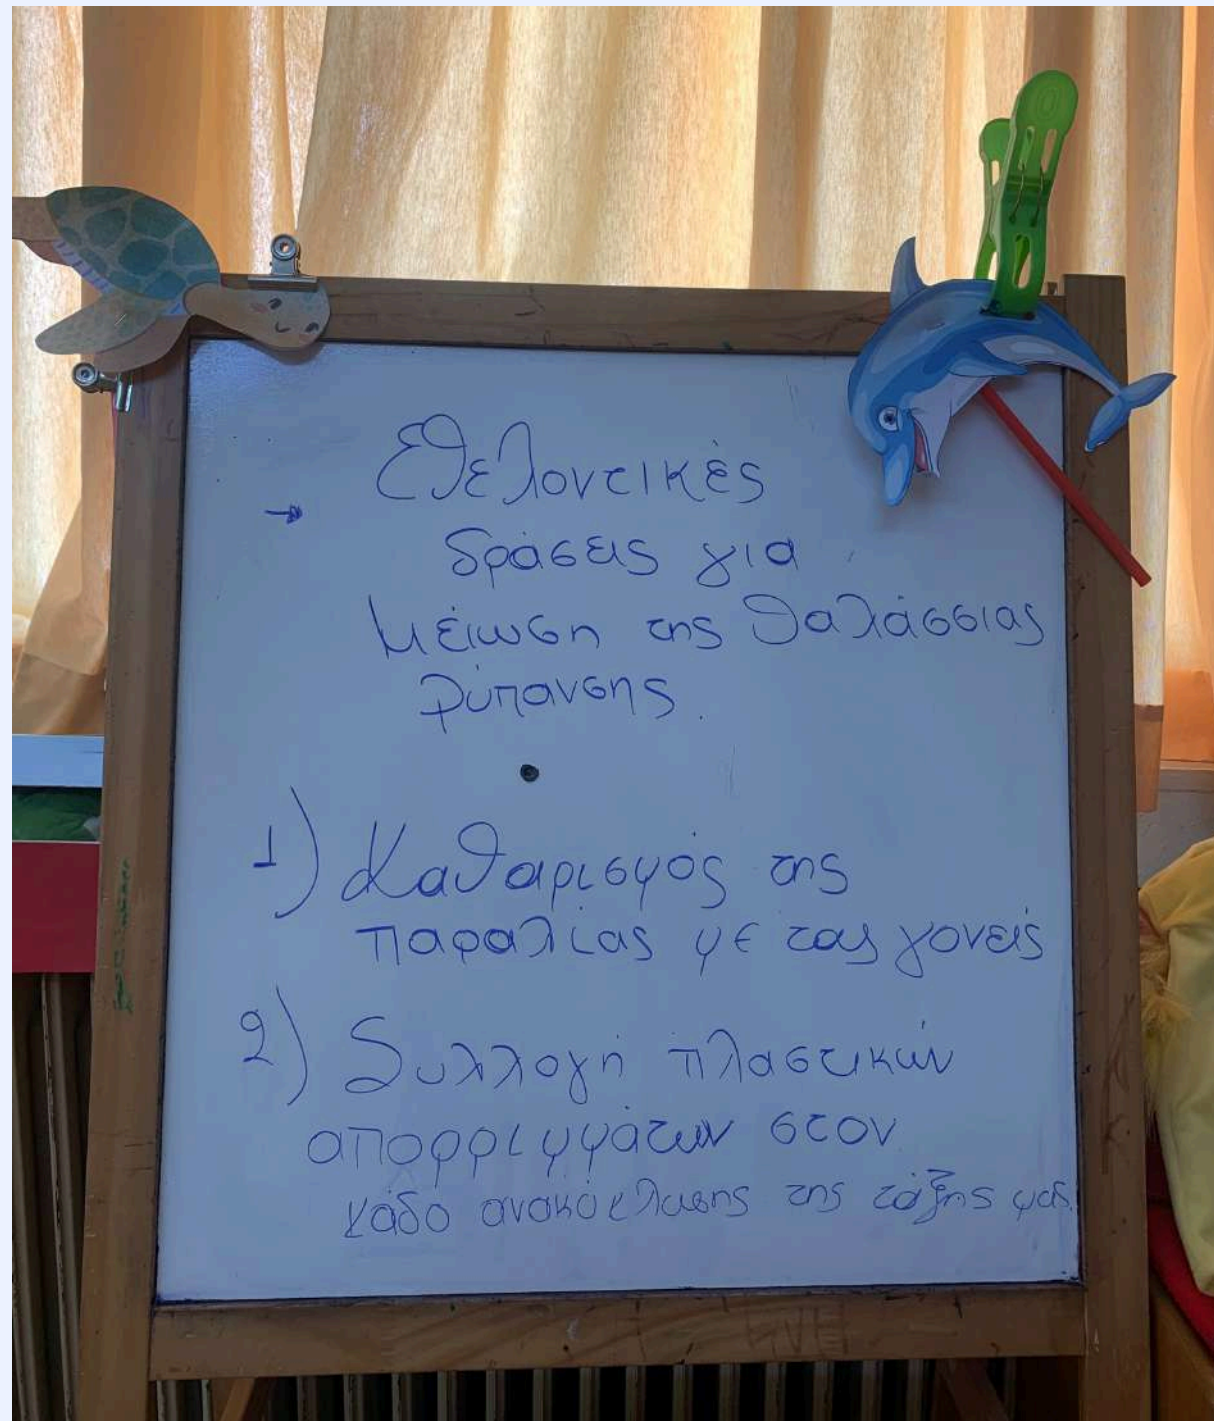 → Εθελοντικές
δράσεις για
Μείωση της θαλάσσιας
Ρύπανσης.
1) Καθαρισμός της
παραλίας με τους γονείς
2) Συλλογή πλαστικών
απορριμμάτων στον
κάδο ανακύκλωσης της τάξης μας.